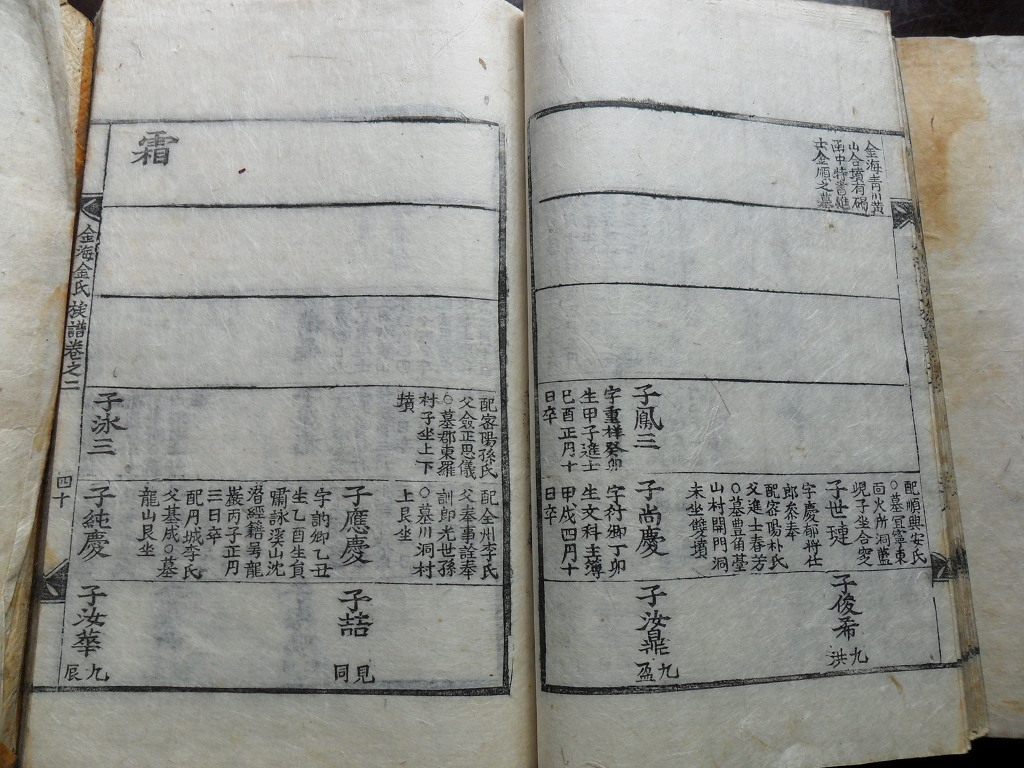 金海靑川黃
山合墳有碣
面中特書進
士金順之墓
配順興安氏
○墓冥寧東
面火所洞藍
峴子坐合窆
子世璉
字慶郁將仕
郎參奉
配密陽朴氏
父進士春芳
○墓豊角墓
山村開門洞
未坐雙墳
子俊希
九洪
子鳳三
字重祥癸卯
生甲子進士
己酉正月十
日卒
子尙慶
字符卿丁卯
生文科主簿
甲戌四月十
日卒
子汝鼎
九盈
配密陽孫氏
父僉正思儀
○墓郡東羅
村子坐上下
墳
配全州李氏
父奉事詮奉
訓郎光世孫
○墓川洞村
上艮坐
子應慶
字訥卿乙丑
生乙酉生員
嘯詠溪山沈
潛經籍号龍
巖丙子正月
三日卒
配丹城李氏
父基成○墓
龍山艮坐
子喆
見同
霜
子泳三
子純慶
子汝華
九辰
金海金氏族譜卷之二
四十